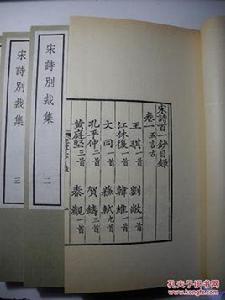 宋詩百一鈔目錄
卷一 五言古
王琪一首 劉敞一首
江休復一首 韓維一首
文同一首 蘇軾 首
孔平仲二首 賀鑄 首
黃庭堅 首 秦觀一首
宋詩別裁集 二
宋詩別裁集 三
孔夫子旧书网